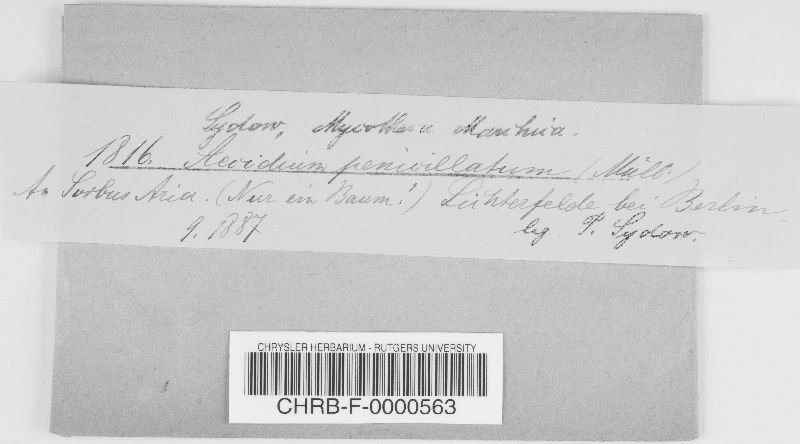 Sydow, Mycotheca Marchica.
1816. Aecidium penicillatum (Müll.)
An Sorbus Aria. (Nur ein Baum!) Lichterfelde bei Berlin.
9. 1887
leg P. Sydow.
CHRYSLER HERBARIUM - RUTGERS UNIVERSITY
CHRB-F-0000563